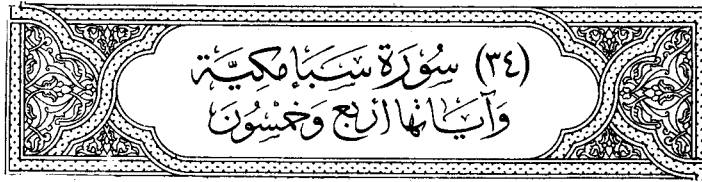 (٣٤) سُورَة سَبَإ مَكِيَّة
وَآيَاتُهَا أَرْبَع وَخَمْسُونَ